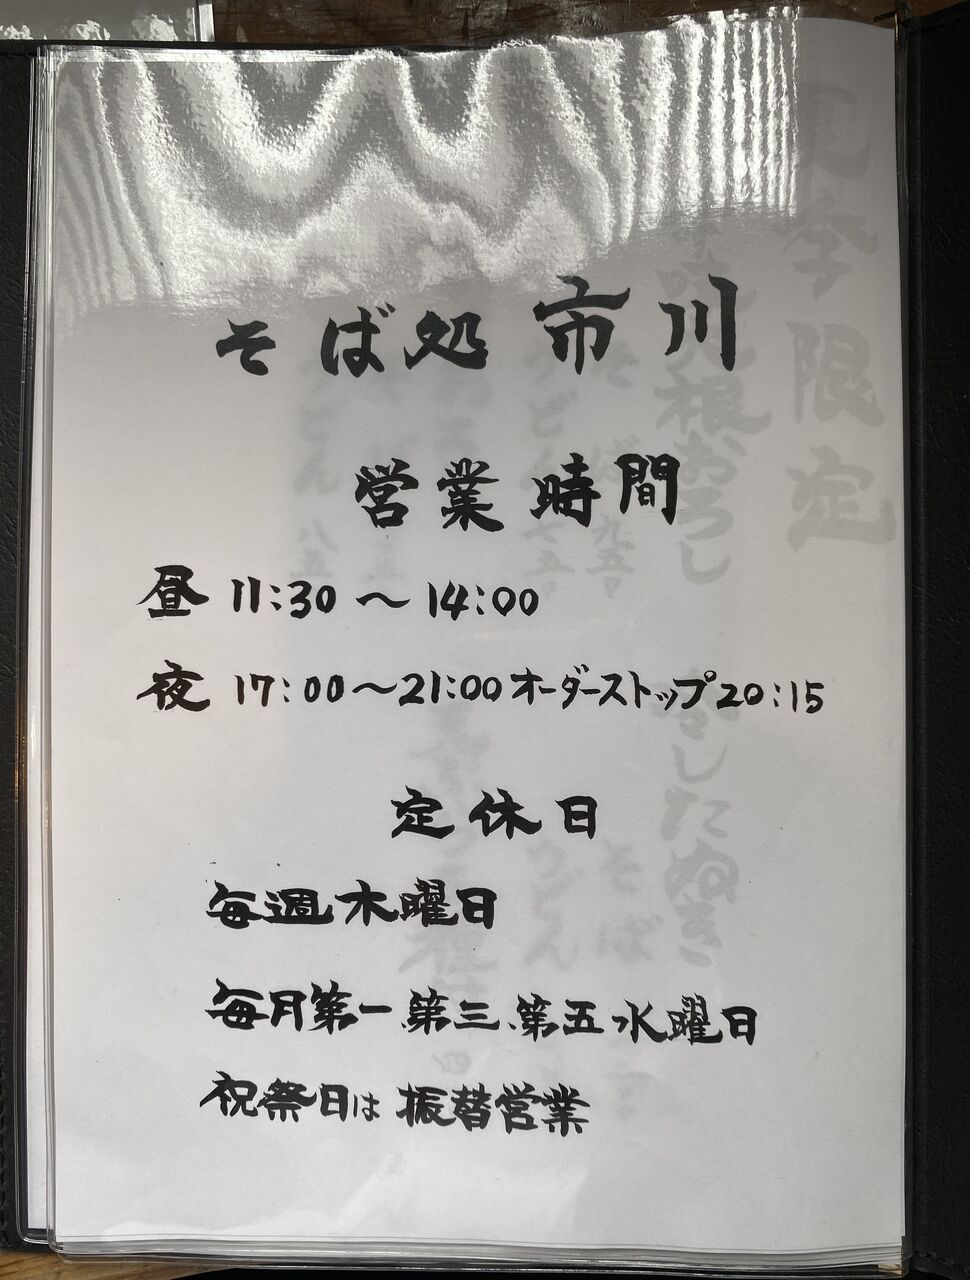 そば処 市川
営業時間
昼 11:30 〜 14:00
夜 17:00〜21:00 オーダーストップ 20:15
定休日
毎週木曜日
毎月第一、第三、第五水曜日
祝祭日は振替営業